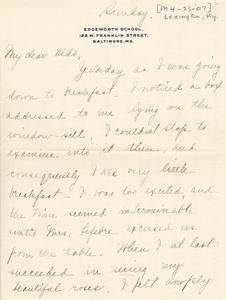 Sunday.
[M 4-23-07]
Lexington, Ky.
EDGEWORTH SCHOOL,
122 W. FRANKLIN STREET,
BALTIMORE, MD.
My dear Aldo,
Yesterday as I was going
down to breakfast, I noticed a box
addressed to me lying on the
window-sill. I couldn't stop to
examine into it then, and
consequently I ate very little
breakfast. I was too excited and
the time seemed interminable
until Mrs. Lefebre excused us
from the table. When I at last
succeeded in seeing my
beautiful roses, I felt amply